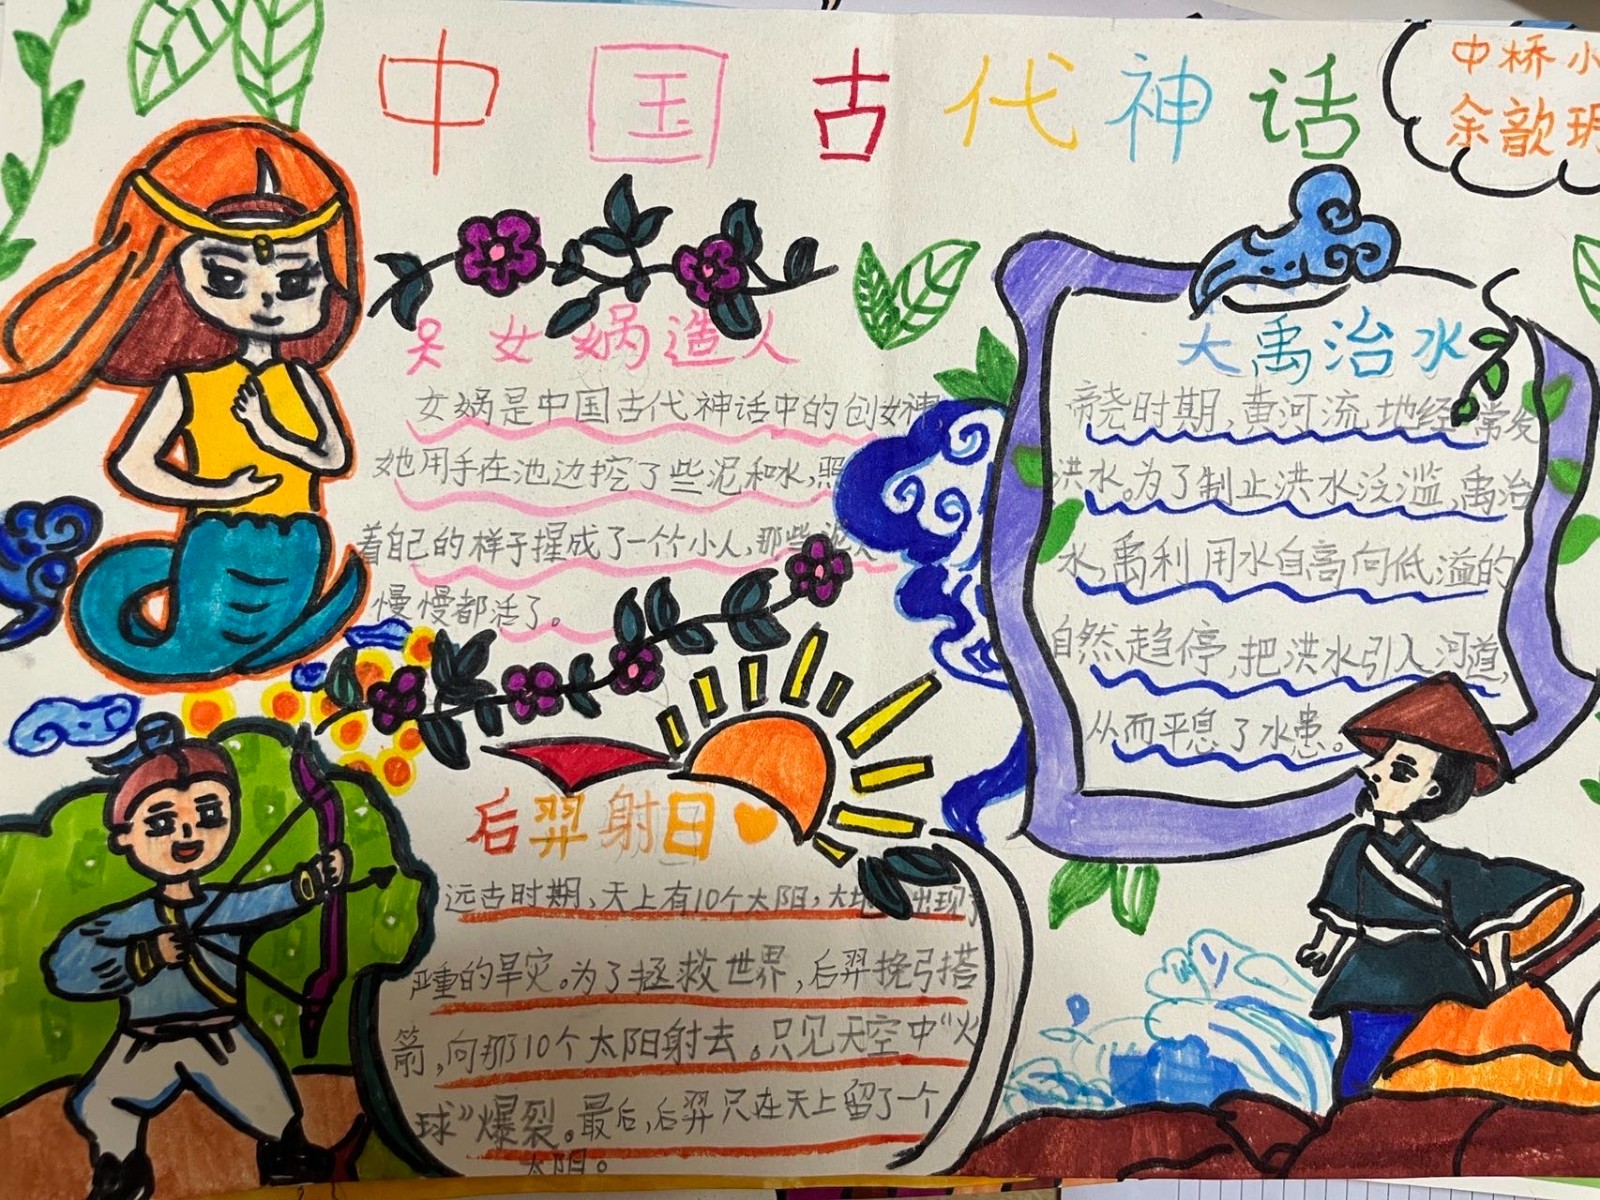 中国古代神话
中桥小
余歆玥
女娲造人
女娲是中国古代神话中的创女神
她用手在池边挖了些泥和水,照
着自己的样子捏成了一个小人,那些泥人
慢慢都活了。
大禹治水
帝尧时期,黄河流地经常发
洪水。为了制止洪水泛滥,禹治
水,禹利用水自高向低溢的
自然趋停,把洪水引入河道,
从而平息了水患。
后羿射日
远古时期,天上有10个太阳,大地出现
严重的旱灾。为了拯救世界,后羿挽弓搭
箭,向那10个太阳射去。只见天空中“火
球”爆裂。最后,后羿只在天上留了一个
太阳。